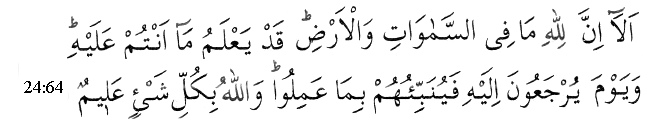 اَلَاۤ اِنَّ لِلّٰهِ مَا فِى السَّمٰوَاتِ وَالْاَرْضِؕ قَدْ يَعْلَمُ مَاۤ اَنْتُمْ عَلَيْهِؕ
وَيَوْمَ يُرْجَعُوْنَ اِلَيْهِ فَيُنَبِّئُهُمْ بِمَا عَمِلُوْاؕ وَاللّٰهُ بِكُلِّ شَىْءٍ عَلِيْمٌ 24:64